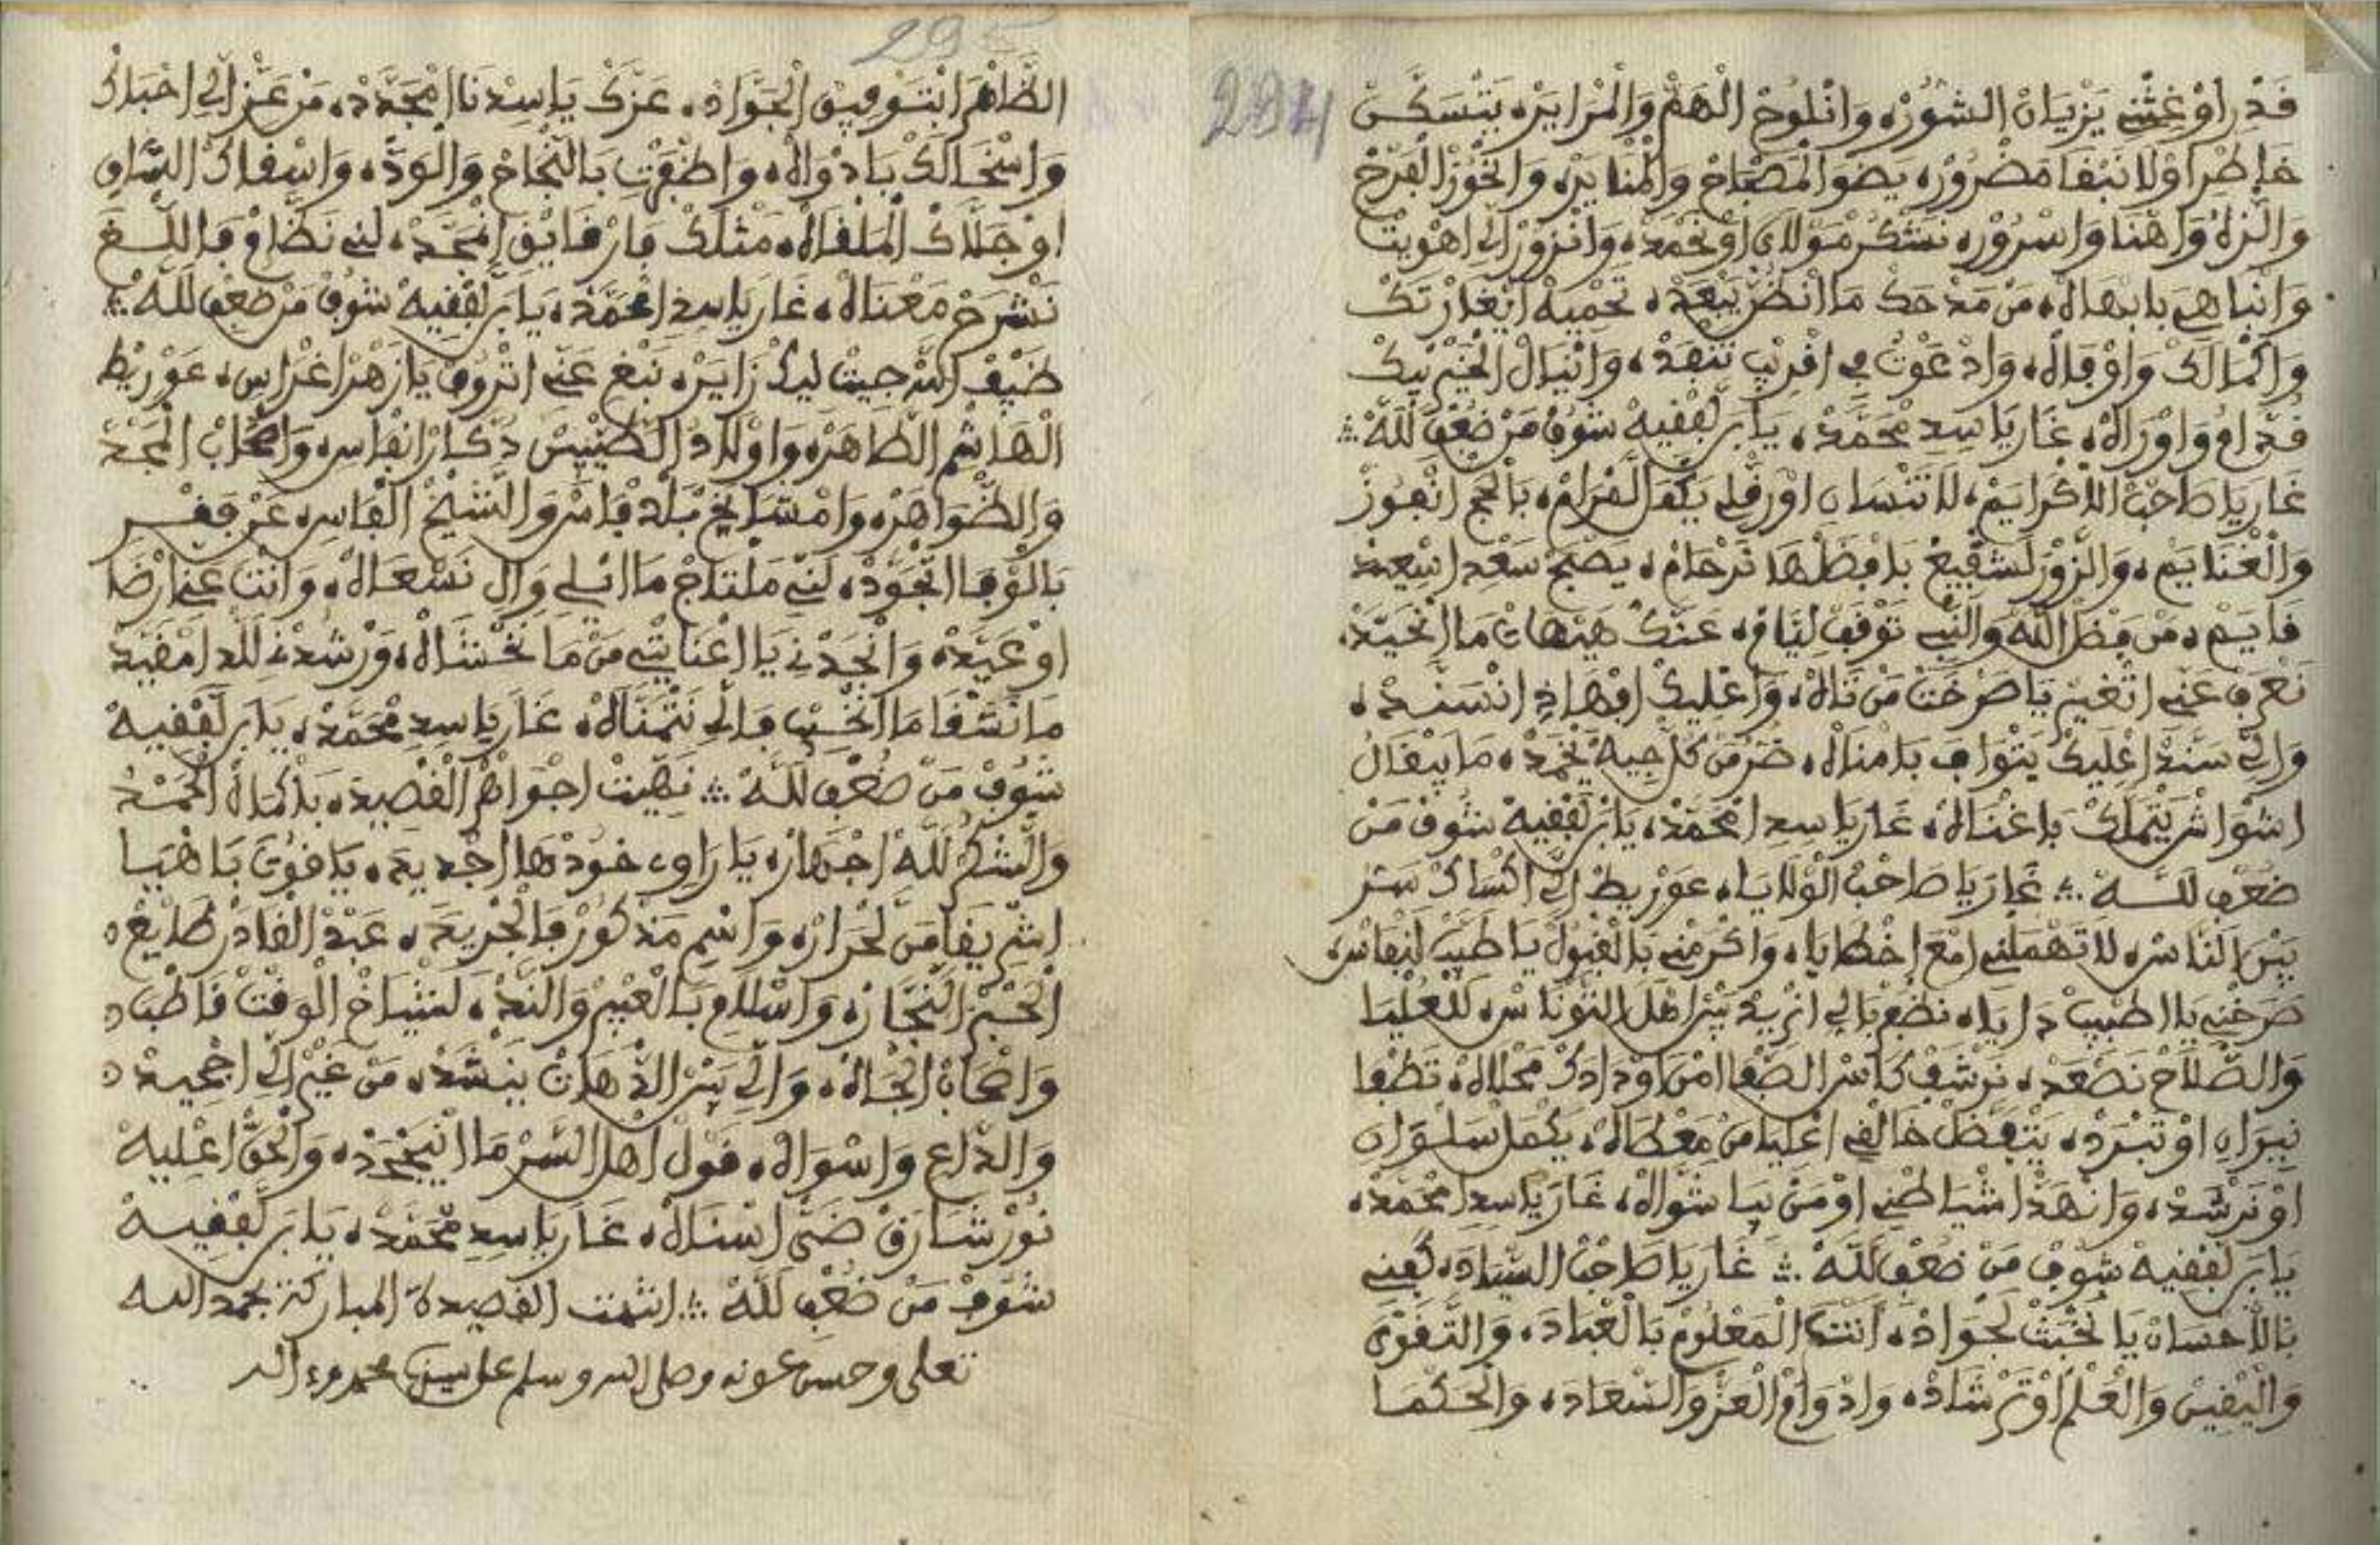 294
فَدْرِ اوْغِثْنِي يَزْيَانْ الشُّوُرْ، وَانْلُوحْ الْهَمّْ وَالْمْرَايَرْ، يَتْسَكَّسْ
خَاطْرِ اوْلَا نَبْقَا مَضْرُورْ، يَضْوَ الْمَصْبَاحْ وَالْمْنَايَرْ، وَانْحُوزْ الْفَرْحْ
وَالنّزَاهْ وَاهْنَا وَاسْرُورْ، نَشْكُرْ مَوْلَايَ اوْنَحْمَدْ، وَانْزُورْ الِي اهْوِيتْ
وَانْبَاهِي بَابْهَاهْ، مَنْ مَدْحَكْ مَا انْضُنّْ يَبْعَدْ، تَحْمِيهْ اتْغَارْتَكْ
وَاكْمَالَكْ وَاوْفَاهْ، وَادْعَوْتُ فِي افْرِيبْ تَنْفَدْ، وَانْيَالْ الْخَيْرْ بِيكْ
فُدَّامُ وَاوْرَاهْ، غَارَ يَا سِيدِ مْحَمَّدْ، يَا بَنْ لَفْقِيهْ شُوفْ مَنْ ضُعْفِ لَلَّهْ
غَارَ يَا صَاحْبْ الْاكْرَايَمْ، لَا تَنْسَانِ اوْرَفّْلِي يَكْمَلْ لَمْرَامْ، بَالْحَجّْ انْفُوزْ
وَالْغْنَايَمْ، وَانْزُورْ لَشْفِيعْ بَافْضَلْهَا تَرْحَامْ، يَصْبَحْ سَعْدِ اسْعِيدْ
فَايَمْ، مَنْ فَضْلْ اللَّهْ وَالنّبِي تَوْقَفْ لِيَّامْ، عَنَّكْ هَيْهَاتْ مَا انْحَيَّدْ،
نَعْرَفْ عَنِّي اتْغِيرْ يَا صَرْخَتْ مَنْ تَاهْ، وَاعْلِيكْ افْهَاذِ انْسَنَّدْ،
وَالِّي سَنَّدْ اعْلِيكْ يَتْوَافَ بَامْنَاهْ، ضَرّْ مَنْ كُلّْ جِيهْ يَخْمَدْ، مَا يَبْقَالُ
اشْوَاشْ يَتْمَلَّكْ بَاغْنَاهْ، غَارَ يَا سِيدِ امْحَمَّدْ، يَا بَنْ لَفْقِيهْ شُوفْ مَنْ
ضُعْفِ لَلَّهْ غَارَ يَا صَاحْبْ الْوْلَايَا، عَوْرِيطْ الِّي اكْسَاكْ سَتْرْ
بَيْنْ النَّاسْ، لَا تَهْمَلْنِي امْعَ اخْطَايَا، وَاكْرَمْنِي بَالْقْبُولْ يَا طَبّْ لَنْفَاسْ،
صَرْخْنِي يَا اطْبِيبْ دَايَا، نَطْمَعْ بَالِي انْزِيدْ بَيْنْ اهْلْ التُّونَاسْ، لَلْعُلْيَا
وَالصّْلَاحْ نَصْعَدْ، نَرْشَفْ كَاسْ الصّْفَا امْنْ اوْدَادَكْ مَحْلَاهْ، تَطْفَا
نِيرَانِ اوْتَبْرَدْ، يَتْفَضَّلْ خَالْقِي اعْلِيَا مَنْ مَعْطَاهْ، يَكْمَلْ سَلْوَانِ
اوْنَرْشَدْ، وَانْهَدّْ اشْيَاطْنِي اوْمَنْ بِيَا شْوَاهْ، غَارَ يَا سِيدِ امْحَمَّدْ،
يَا بَنْ لَفْقِيهْ شُوفْ مَنْ ضُعْفِ لَلَّهْ غَارَ يَا صَاحْبْ السّْيَادَ، كُفْنِي
بَالْاحْسَانْ يَا نُخْبَتْ لَجْوَادْ، انْتَ الْمَعْلُومْ بَالْعْبَادَ، وَالتَّقْوَى
وَالْيْقِينْ وَالْعَلْمْ اوْتَرْشَادْ، وَادْوَامْ الْعَزّْ وَالسّْعَادَ، وَالْحَكْمَا
295
الظَّاهْرَ ابْتَوْفِيقْ الْجَوَّادْ، عَزَّكْ يَا سِيدْنَا امْجَدَّدْ، مَنْ عَنْدْ الِّي احْبَاكْ
وَاسْخَالَكْ بَادْوَاهْ، وَاظْفَرْتِ بَالنّْجَاحْ وَالْوَدّْ، وَاسْقَاكْ السَّاقِ
اوْجَلَّاكْ الْمَلْقَاهْ، مَثْلَكْ فَارْقَايَقْ امْجَّدْ، لَنِي نَظَّامْ فَاللّْغَ
نَشْرَحْ مَعْنَاهْ، غَارَ يَا سِيدِ امْحَمَّدْ، يَا بَنْ لَفْقِيهْ شُوفْ مَنْ ضُعْفِ لَلَّهْ
ضَيْفْ اللّهْ جِيتْ لِيكْ زَايَرْ، نَبْغِ عَنِّي اتْرُوفْ يَا زَهْرْ اغْرَاسِ، عَوْرِيطْ
الْهَاشْمِ الطَّاهَرْ، وَاوْلَادُ الطَّيْبِينْ دْكَارْ انْفَاسِ، وَاصْحَابْ الْمَجْدْ
وَالظّْوَاهَرْ، وَامْشَايَخْ بَلْدْ فَاسْ وَالشّيْخْ الْفَاسِي، عَزّْ فَقْرِ
بَالْوْفَا اتْجَوَّدْ، لَنِّي مَلْتَاجْ مَا اسْلِي وَالِي نَسْعَاهْ، وَانْتَ عَنِّي ارْضَا
اوْعَيَّدْ، وَانْجَدْنِي يَا اعْنَايْتِي مَنْ مَا نَخْشَاهْ، وَرْشُدْنِي لَلّدِ امْفِيدْ
مَا نَشْقَا مَا انْخِيبْ فَالِّي نَتْمَنَّاهْ، غَارَ يَا سِيدِ مْحَمَّدْ، يَا بَنْ لَفْقِيهْ
شُوفْ مَنْ ضُعْفِ لَلَّهْ نَهِّيتْ اجْوَاهْرْ الْقْصِيدَ، بَاكْمَالْ الْحَمْدُ
وَالشُّكْرْ لَلَّهْ اجْهَارْ، يَا رَاوِي خُودْهَا اجْدِيدَ، يَاقُوتَ بَاهْيَا
اشْرِيفَا مَنْ لَحْرَارْ، وَاسْمِي مَذْكُورْ فَالْجْرِيدَ، عَبْدْ الْقَادَرْ طَايَعْ
الْحَبْرْ النَّجَّارْ، وَاسْلَامِ بَالْعْبِيرْ وَالنَّدّْ، لَشْيَاخْ الْوَقْتْ قَاطْبَ
وَاصْحَابْ الْجَاهْ، وَالِي بَيْنْ الدّْهَاتْ يَنْشَدْ، مَنْ غِيرْ الِي اجْحِيدْ
وَالدَّاعِ وَاسْوَاهْ، قَوْلْ اهْلْ السَّرّْ مَا ايْنَجْحَدْ، وَالْحَقّْ اعْلِيهْ
نُورْ شَارَقْ ضَيّْ اسْنَاهْ، غَارَ يَا سِيدِ مْحَمَّدْ، يَا بَنْ لَفْقِيهْ
شُوفْ مَنْ ضُعْفِ لَلَّهْ انتهت القصيدة المباركة بحمد الله
تعلى وحسن عونه وصلى الله وسلم على سيدنا محمد وءاله